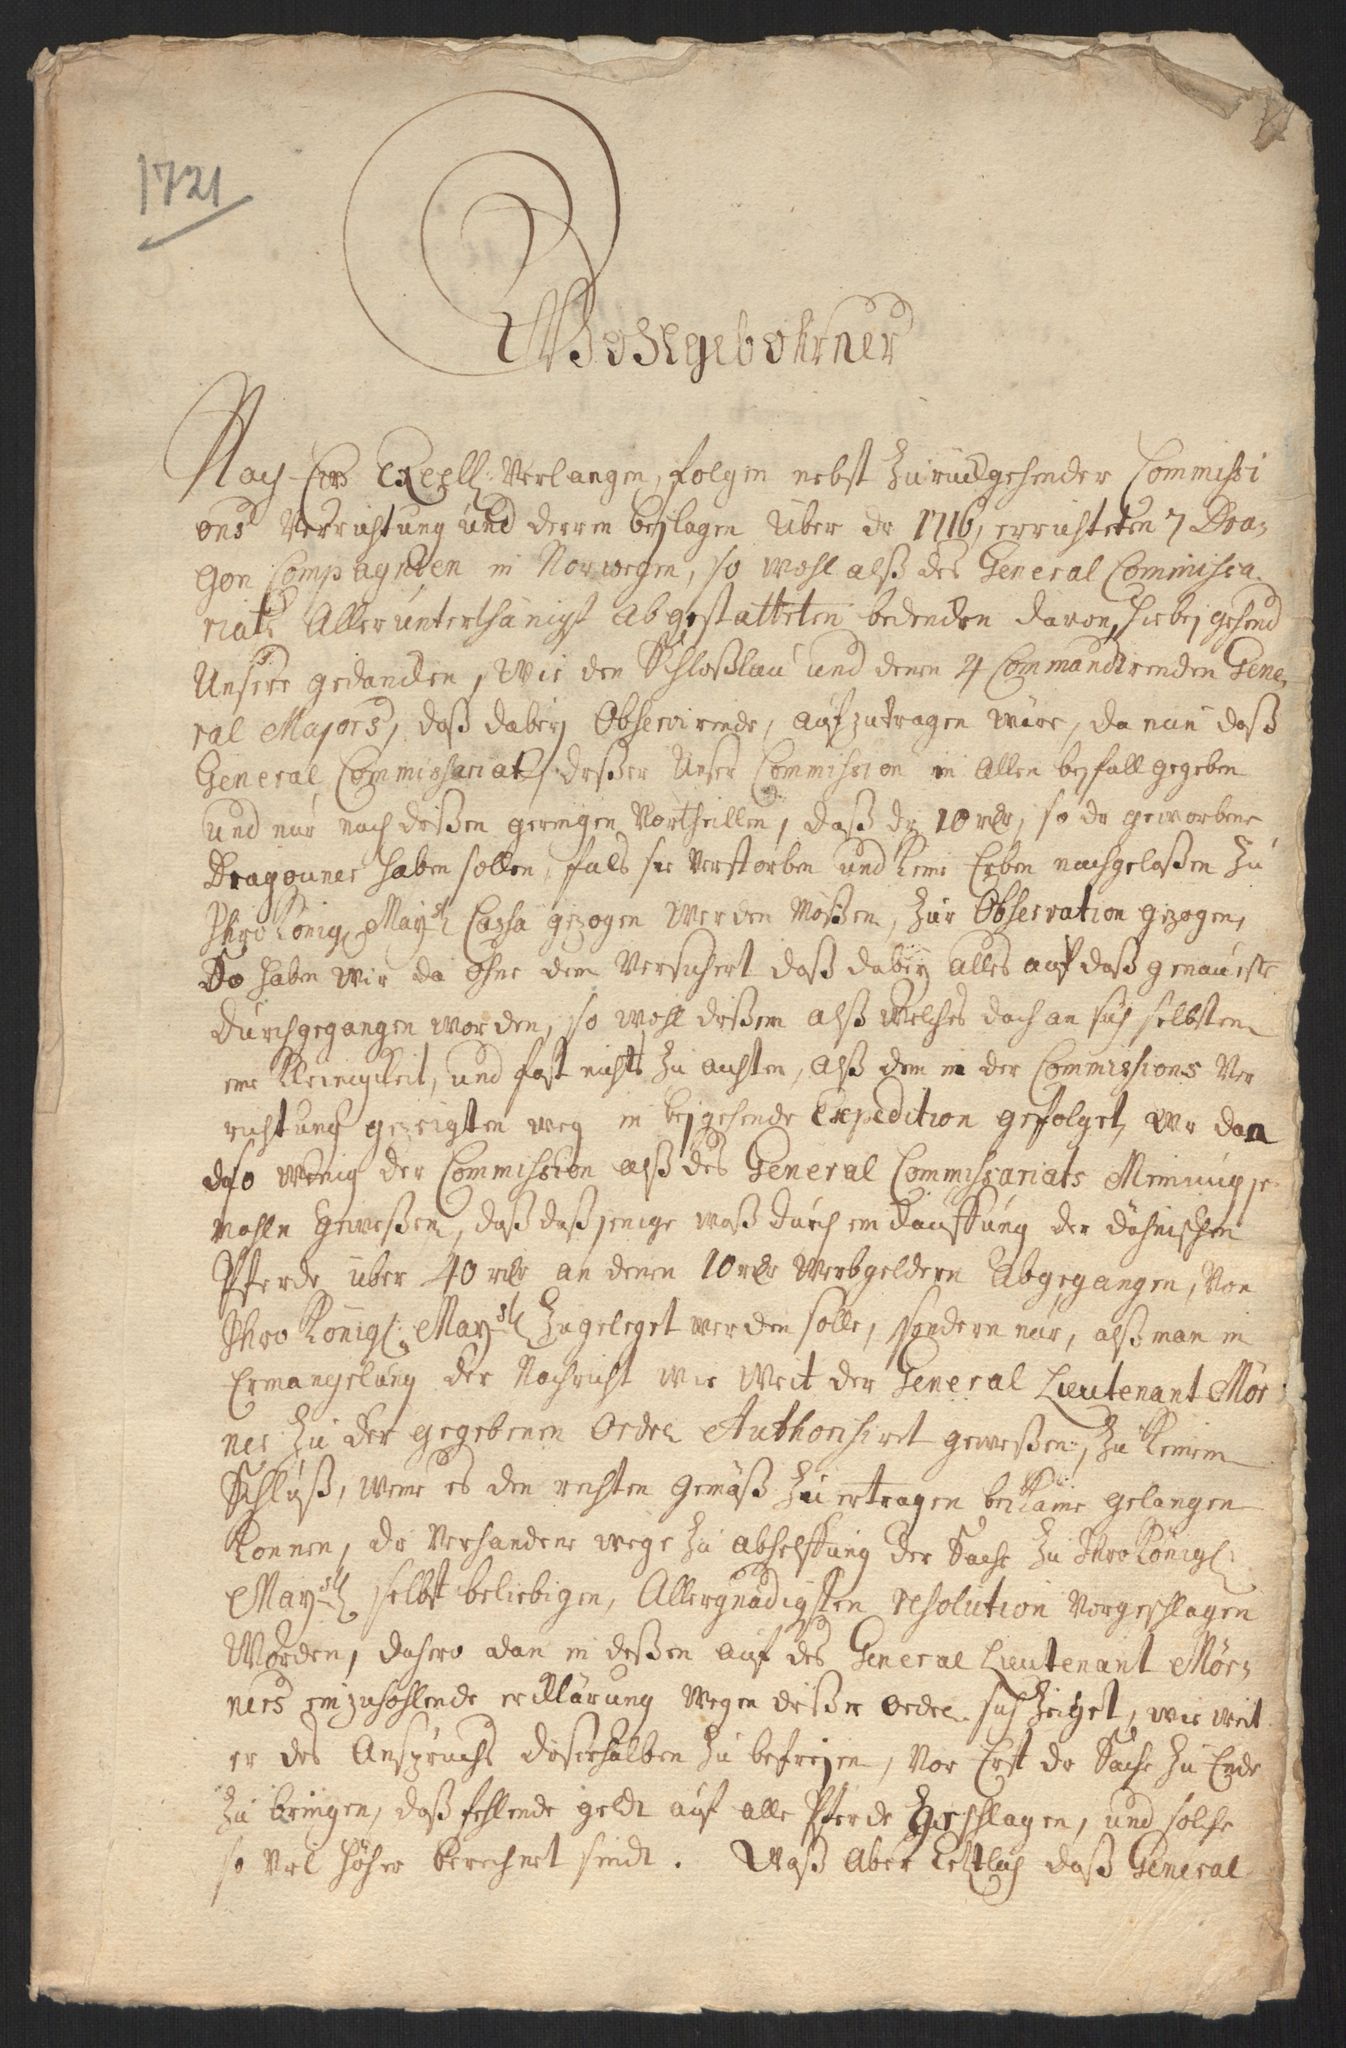 1721
Wohlgebohrner
Nach Ew Excell: Verlangen, folgen nebst Zurückgehender Commissi
ons Verrichtung und derren beylagen über die 1716, errichteten 7 Dra=
gon Compagnien in Norwegen, so wohl alß des General Commissa=
riats Allerunterthänigst abgestatteten bedencken davon, hiebey gehend
Unsere gedancken, wie den Schloßlau und denen 4 Commandirenden Gene=
ral Majors, daß dabey Observirende, aufzutragen wäre, da nun daß
General Commissariat, dießer Unser Commission in Allen beyfall gegeben
und nur nach dießen geringen Vortheillen, daß die 10 rdr, so die geworbene
Dragouner haben sollen, fals sie verstorben und keine Erben nachgelaßen Zu
Ihro Königl Mayst Cassa gezogen werden müßen, Zur Observation gezogen,
So haben wir da ohne dem versichert daß dabey alles auf daß genaueste
durchgegangen worden, so wohl dießem alß welches doch an sich selbsten
eine Kleinigkeit, und fast nichts zu achten, alß dem in der Commissions Ver
richtung gezeigten weg in beygehende Expedition gefolget, wie dan
so wenig der Commission alß des General Commissariats Meinung je=
mahln geweßen, daß daßjenige waß durch einkauffung der dähnischen
Pferde über 40 rdr an denen 10 rdr Werbgeldern Abgegangen, von
Ihro Königl: Mayst Zugeleget werden solle, sondern nur, alß man in
Ermangelung der Nachricht wie weit der General Lieutenant Mör
ner zu der gegebenen Order Authorisiret geweßen, zu keinem
Schluß, weme es den rechten gemäß zu ertragen beikäme gelangen
können, die verhandene wege zu abhelffung der Sache zu Ihro Königl:
Mayst selbst beliebigen, Allergnädigsten resolution vorgeschlagen
Worden, dahero dan in deßen auf des General Lieutenant Mör=
ners einzuhohlende erklärung wegen dießer order sich zeiget, wie weit
er des Anspruchs dieserhalben zu befreyen, vor Erst die Sache zu Ende
zu bringen, daß fehlende geldt auf alle Pferde geschlagen, und solche
so viel höher berechnet sindt. Waß aber letzlich daß General